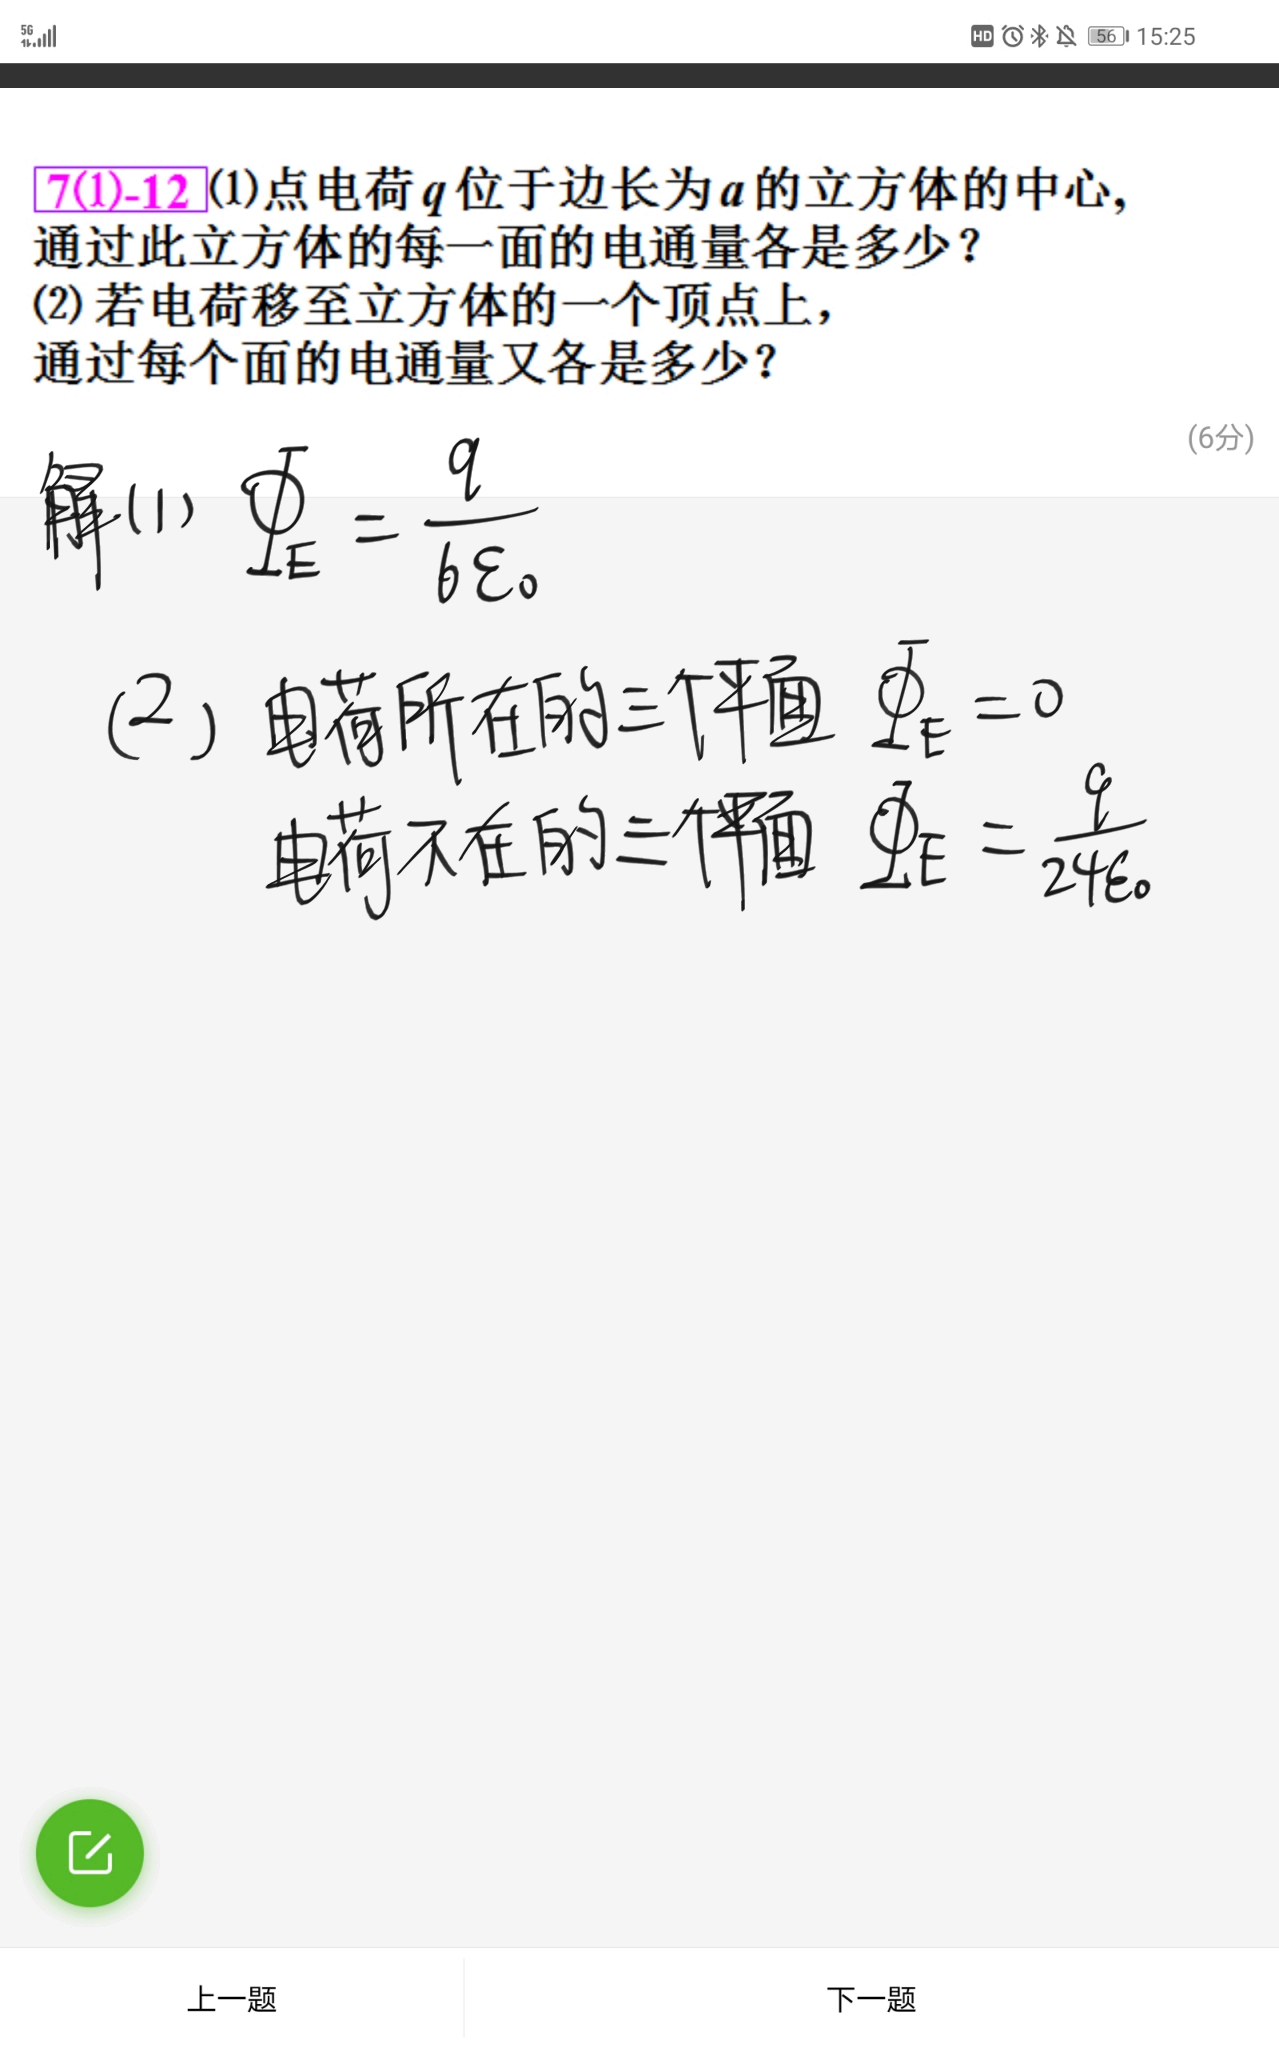 5G
HD 56 15:25
7(1)-12 (1)点电荷q位于边长为a的立方体的中心,
通过此立方体的每一面的电通量各是多少?
(2)若电荷移至立方体的一个顶点上,
通过每个面的电通量又各是多少?
(6分)
解(1) Φ_E = q/6ε₀
(2) 电荷所在的三个平面 Φ_E = 0
电荷不在的三个平面 Φ_E = q/24ε₀
上一题 下一题